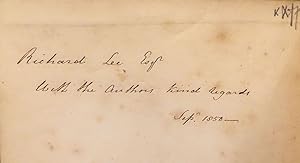 Richard Lee Esqr
With the Authors kind regards
Sepr. 1850—